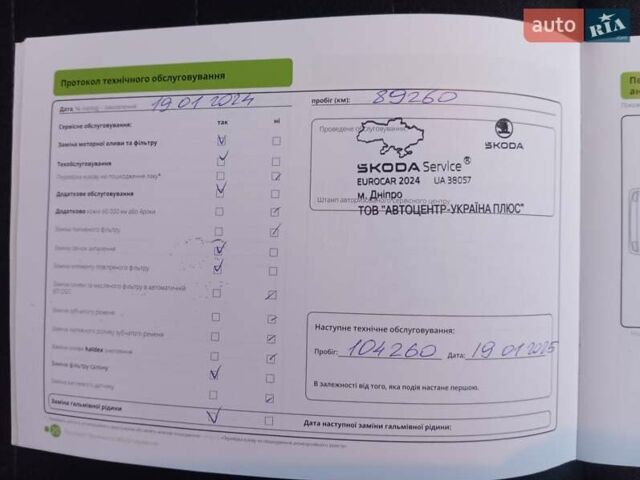 auto RIA
Протокол технічного обслуговування
Дата 19 01 2024
пробіг (км): 89260
Сервісне обслуговування: так ні
Заміна моторної оливи та фільтру
Техобслуговування
Перевірка кузову на пошкодження лаку*
Додаткове обслуговування
Додатково кожні 60.000 км або 4роки
Заміна паливного фільтру
Заміна свічок запалення
Заміна елементу повітряного фільтру
Заміна оливи та масляного фільтру в автоматичній
Заміна зубчатого ременя
Заміна натяжного ролику зубчатого ременя
Заміна оливи haldex
Заміна фільтру салону
Заміна гальмівної рідини
Проведене обслуговування
SKODA
SKODA Service®
EUROCAR 2024 UA 38057
м. Дніпро
Штамп авторизованого сервісного центру
ТОВ "АВТОЦЕНТР-УКРАЇНА ПЛЮС"
Наступне технічне обслуговування:
Пробіг: 104260 Дата: 19 01 2025
В залежності від того, яка подія настане першою.
Дата наступної заміни гальмівної рідини: